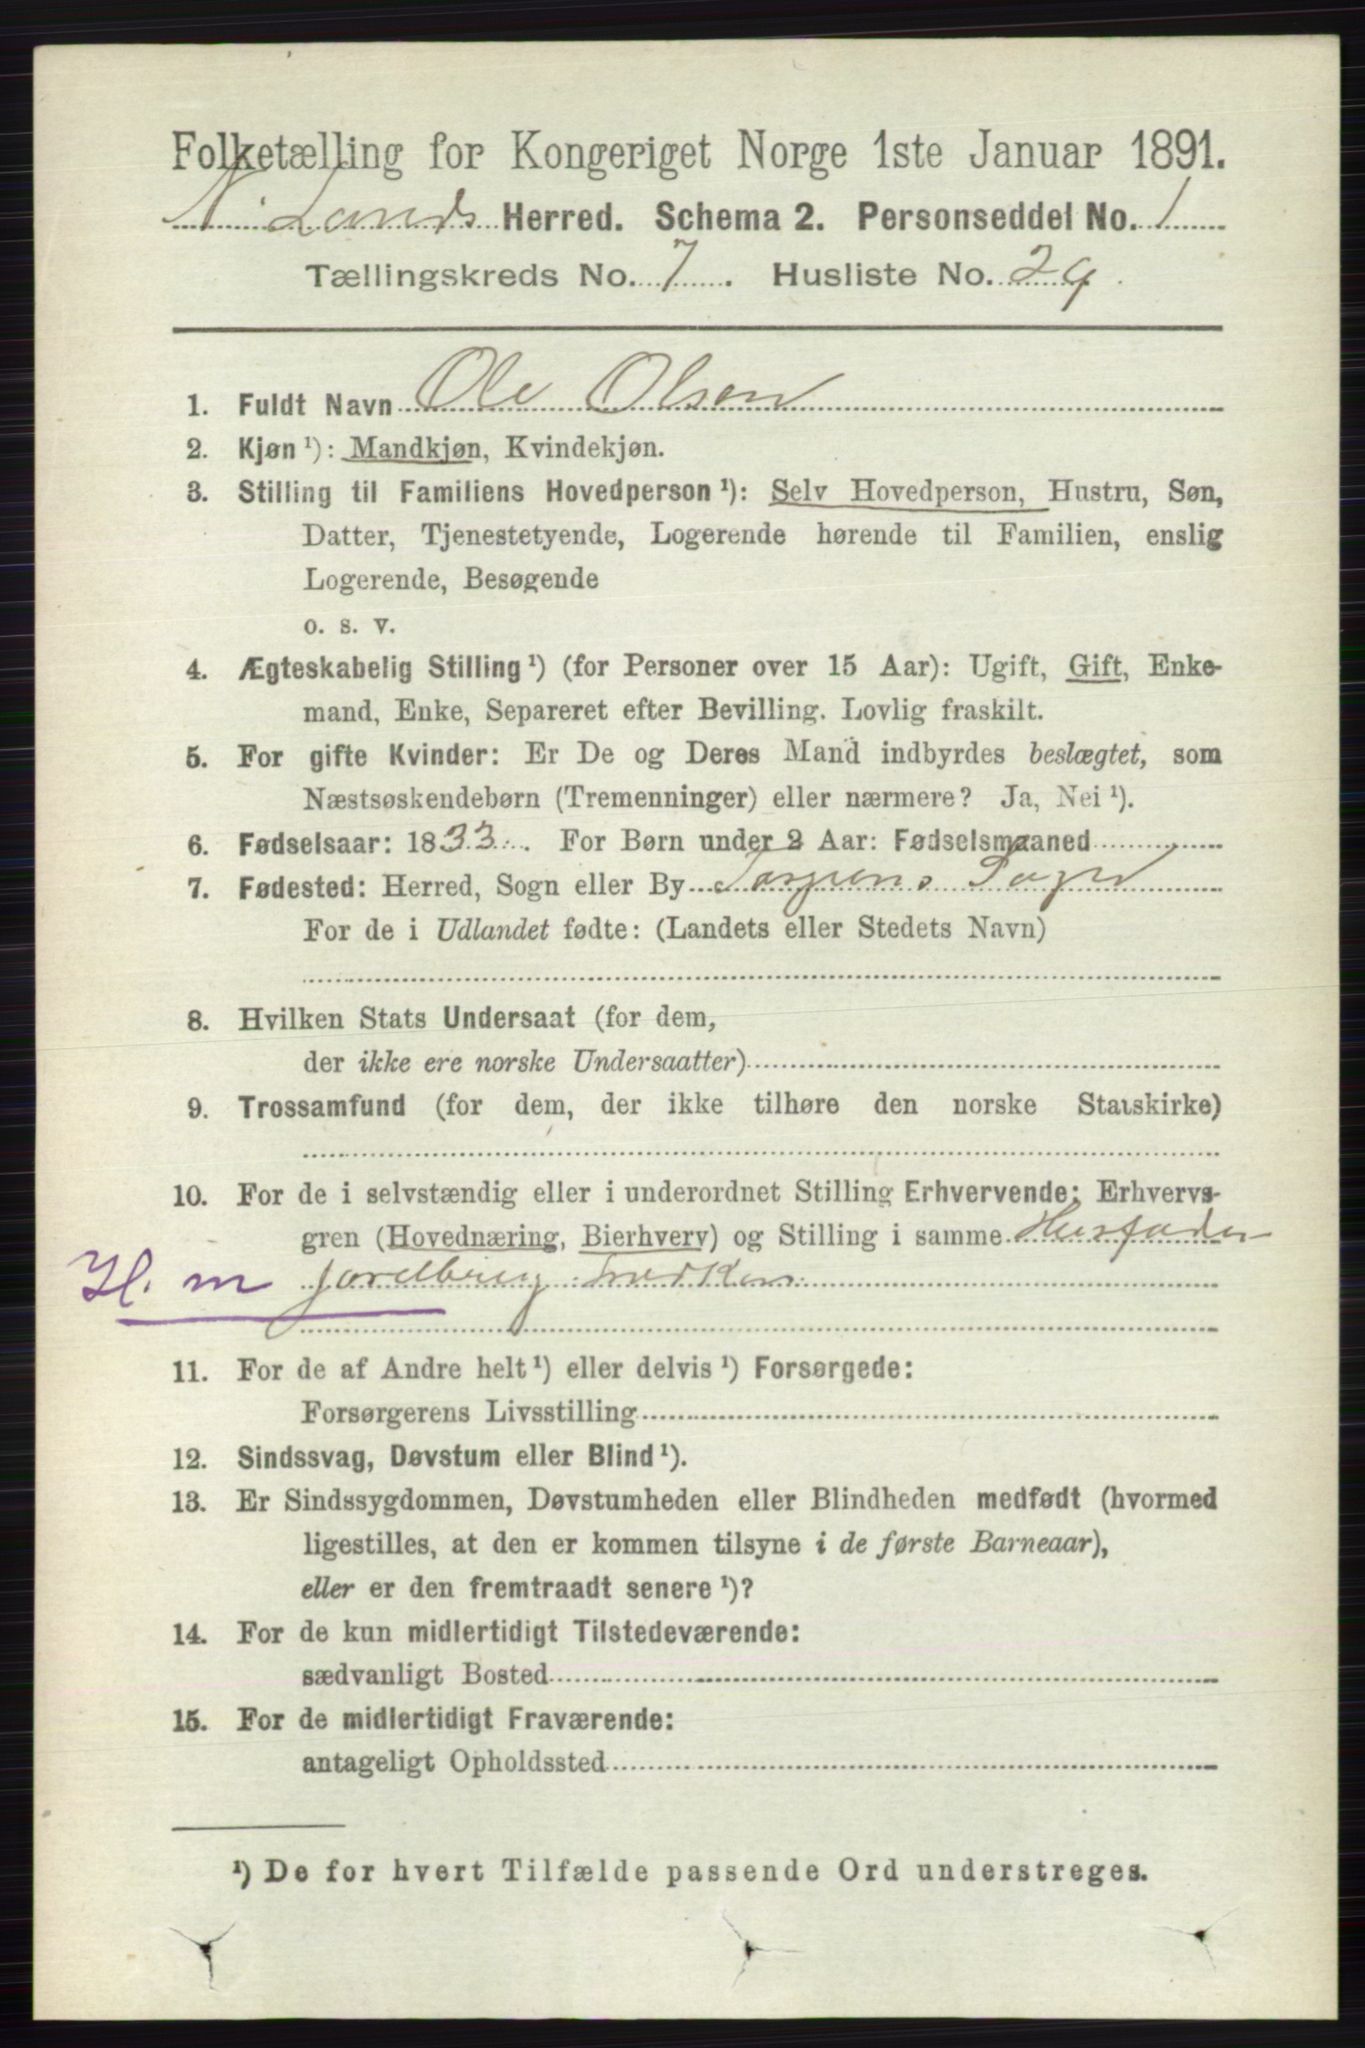 Folketælling for Kongeriget Norge 1ste Januar 1891.
N. Lands Herred. Schema 2. Personseddel No. 1
Tællingskreds No. 7. Husliste No. 29.
1. Fuldt Navn Ole Olsen
2. Kjøn ¹): Mandkjøn, Kvindekjøn.
3. Stilling til Familiens Hovedperson ¹): Selv Hovedperson, Hustru, Søn,
Datter, Tjenestetyende, Logerende hørende til Familien, enslig
Logerende, Besøgende
o. s. v.
4. Ægteskabelig Stilling ¹) (for Personer over 15 Aar): Ugift, Gift, Enke-
mand, Enke, Separeret efter Bevilling. Lovlig fraskilt.
5. For gifte Kvinder: Er De og Deres Mand indbyrdes beslægtet, som
Næstsøskendebørn (Tremenninger) eller nærmere? Ja, Nei ¹).
6. Fødselsaar: 1833. For Børn under 2 Aar: Fødselsmaaned
7. Fødested: Herred, Sogn eller By Torpens Sogn
For de i Udlandet fødte: (Landets eller Stedets Navn)
8. Hvilken Stats Undersaat (for dem,
der ikke ere norske Undersaatter)
9. Trossamfund (for dem, der ikke tilhøre den norske Statskirke)
10. For de i selvstændig eller i underordnet Stilling Erhvervende: Erhvervs-
gren (Hovednæring, Bierhverv) og Stilling i samme Husfader
H. m
11. For de af Andre helt ¹) eller delvis ¹) Forsørgede:
Forsørgerens Livsstilling
12. Sindssvag, Døvstum eller Blind ¹).
13. Er Sindssygdommen, Døvstumheden eller Blindheden medfødt (hvormed
ligestilles, at den er kommen tilsyne i de første Barneaar),
eller er den fremtraadt senere ¹)?
14. For de kun midlertidigt Tilstedeværende:
sædvanligt Bosted
15. For de midlertidigt Fraværende:
antageligt Opholdssted
¹) De for hvert Tilfælde passende Ord understreges.